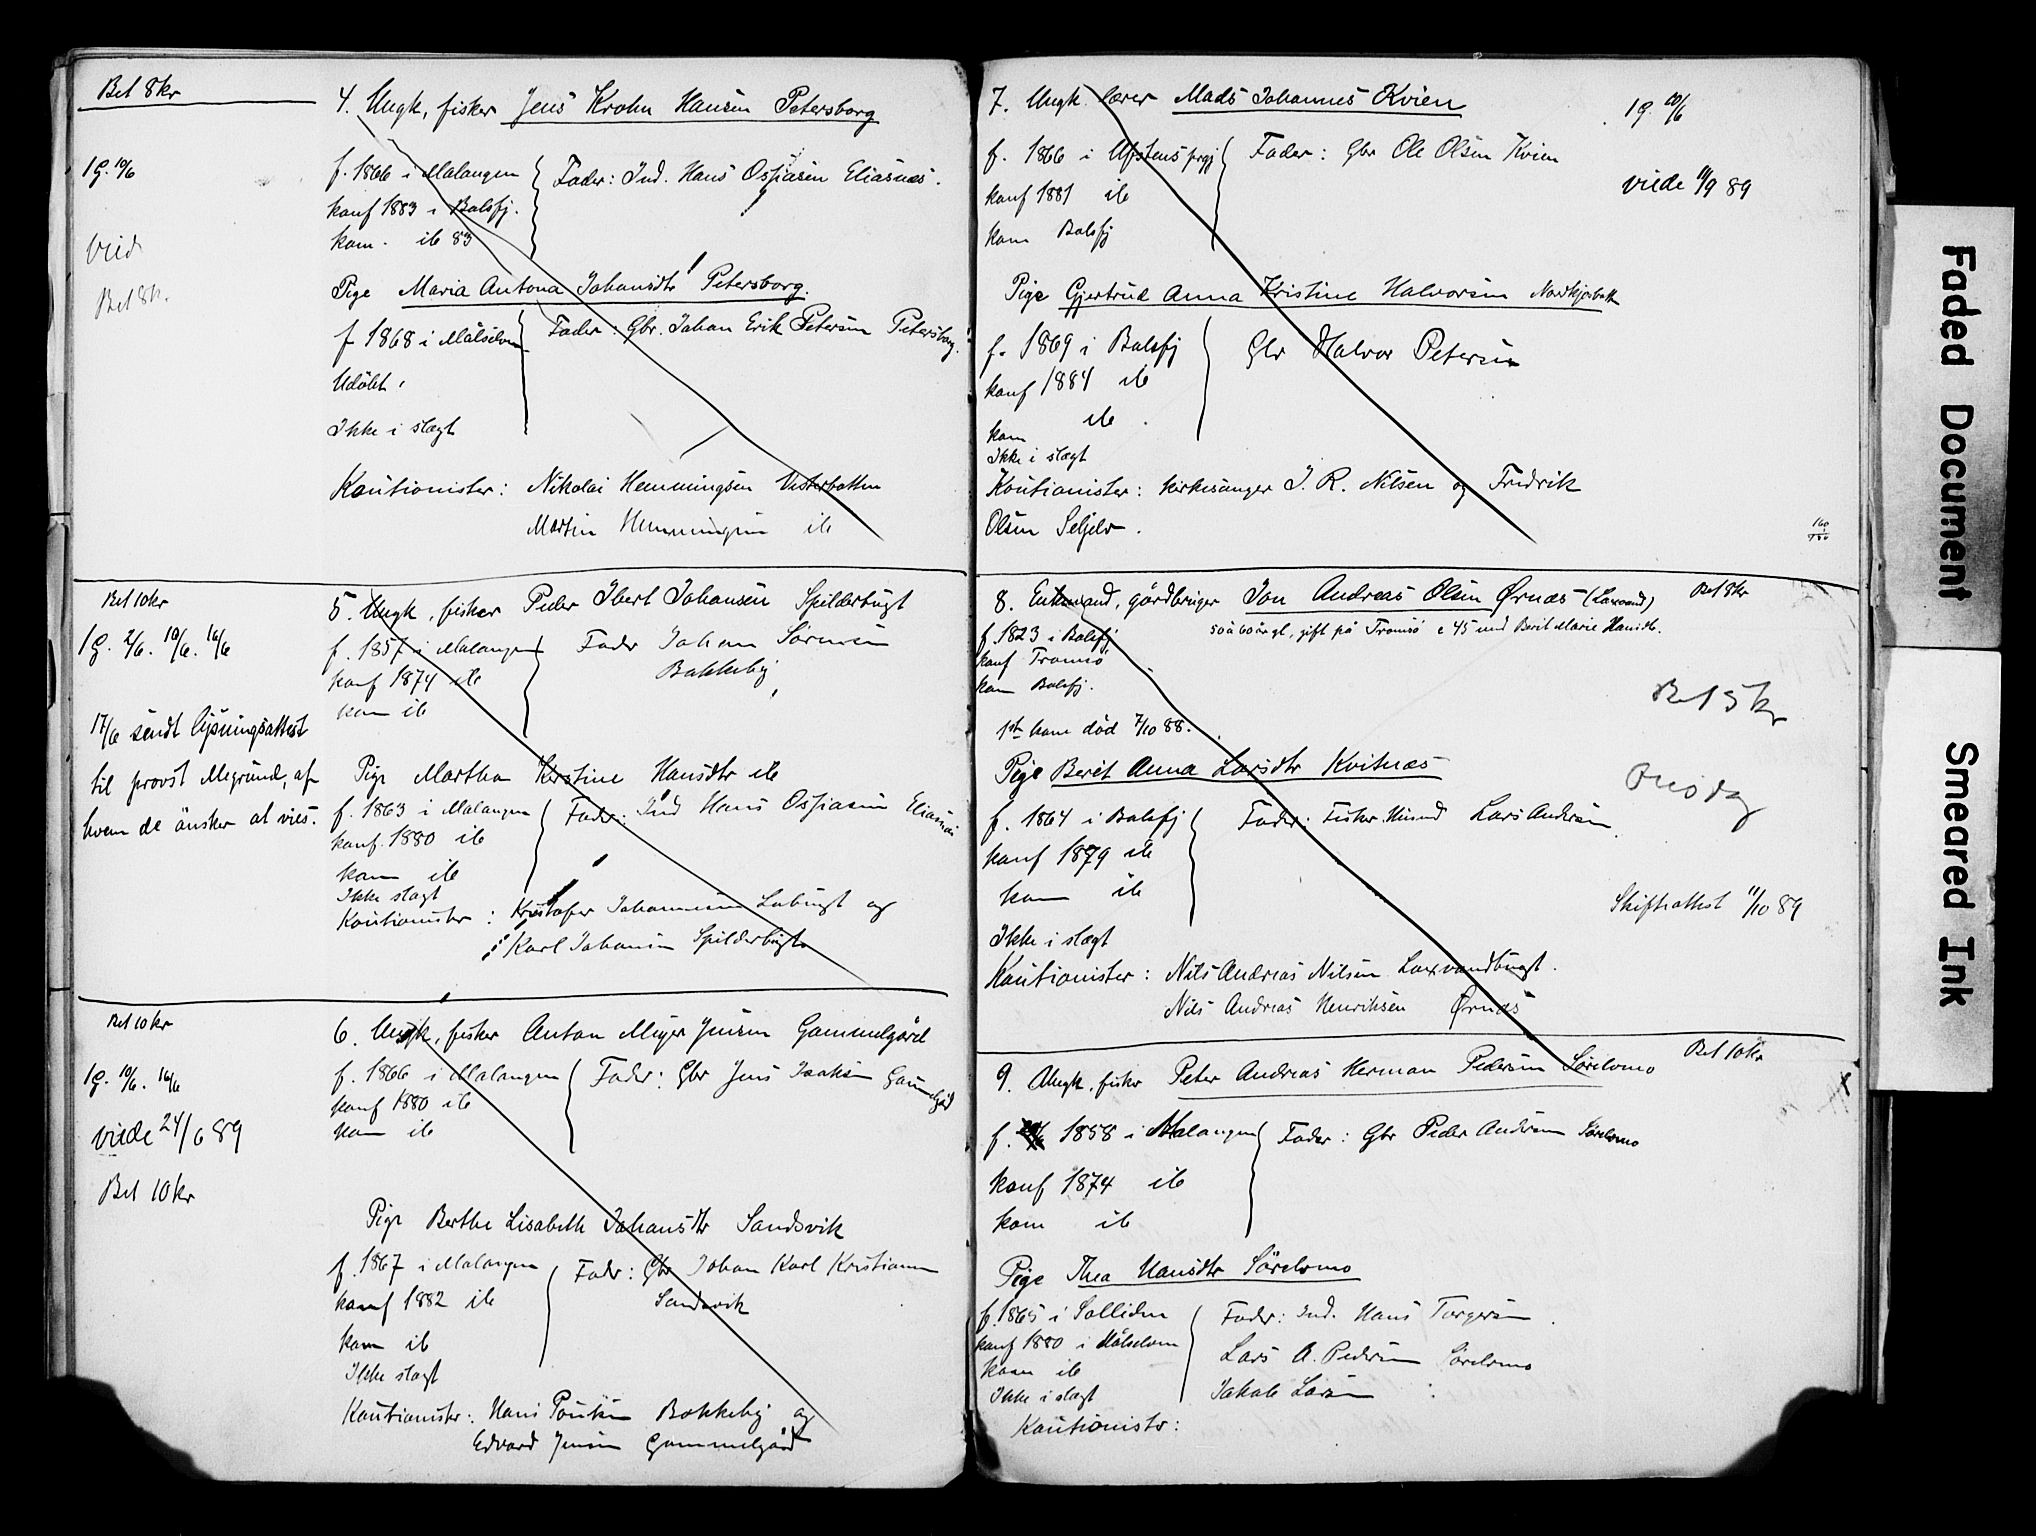 Bet 8kr
4. Ungk, fisker Jens Krohn Hansen Petersborg
lg. 10/6
f. 1866 i Malangen
Fader: Ind. Hans Ossiasen Eliasnæs.
konf 1883 i Balsfj.
kom. ib 83
Vied
Bet 8kr.
Pige Maria Antona Johansdtr Petersborg.
f 1868 i Målselven
Fader: Gbr. Johan Erik Petersen Petersborg.
Udöbt.
Ikke i slægt
Kautionister: Nikolai Hemmingsen Vesterbotten
Martin Hemmingsen ib
Bet 10kr
5. Ungk, fisker Peder Ibert Johansen Spilderbugt
lg. 2/6. 10/6. 16/6
f. 1857 i Malangen
Fader Johan Sörensen
Bakkeby
konf 1874 ib
kom ib
17/6 sendt lysningsattest
til provst Alegrund, af
hvem de önsker at vies.
Pige Martha Kirstine Hansdtr ib
f. 1863 i Malangen
Fader: Ind Hans Ossiasen Eliasnæs
konf. 1880 ib
kom ib
Ikke slægt
Kautionister: Kristofer Johannesen Labugt og
Karl Johansen Spilderbugt
Bet 10kr
6. Ungk, fisker Anton Meyer Jensen Gammelgård
lg. 10/6. 16/6
f. 1866 i Malangen
Fader: Gbr Jens Isaksen Gammelgård
konf 1880 ib
kom ib
viede 24/6 89
Bet 10kr
Pige Berthe Lisabeth Johansdtr Sandsvik
f. 1867 i Malangen
Fader: Gbr Johan Karl Kristiansen
Sandsvik
konf 1882 ib
kom ib
Ikke slægt
Kautionister: Hans Poulsen Bakkeby og
Edvard Jensen Gammelgård
7. Ungk. lærer Mads Johannes Kvien
lg. 10/6
f. 1866 i Ofstens prgj
Fader: Gbr Ole Olsen Kvien
viede 11/9 89
konf 1881 ib
kom Balsfj
Pige Gjertrud Anna Kristine Halvorsen Nordkjosbotn
f. 1869 i Balsfj
Gbr Halvor Petersen
konf 1884 ib
kom ib
Ikke i slægt
Kautionister: kirkesanger J. R. Nilsen og Fredrik
Olsen Seljelv.
160/180
8. Enkemand, gårdbruger Jon Andreas Olsen Ørnæs (Laxvand)
Bet 8kr
50 à 60 år gl, gift på Tromsö c 45 med Berit Marie Hansdtr.
f. 1823 i Balsfj
konf Tromsö
kom Balsfj.
Bet 5 kr
1st kone död 7/10 88.
Pige Berit Anna Larsdtr Kvitnæs
Onsdag
f. 1864 i Balsfj
Fader: Fisker. Husmd Lars Andersen
konf 1879 ib
kom ib
Skifteattest 11/10 89
Ikke i slægt
Kautionister: Nils Andreas Nilsen Laxvandbugt.
Nils Andreas Henriksen Ørnæs
Bet 10kr
9. Ungk, fisker Peter Andreas Herman Pedersen Sörelvmo
f. 1858 i Malangen
Fader: Gbr Peder Andersen Sörelvmo
konf 1874 ib
kom ib
Pige Thea Hansdtr Sörelvmo
f. 1865 i Salliden
Fader: Ind. Hans Torgersen
konf 1880 i Målselven
Lars A. Pedersen Sörelvmo
kom ib
Jakob Larsen
Ikke i slægt
Kautionister:
Faded Document
Smeared Ink